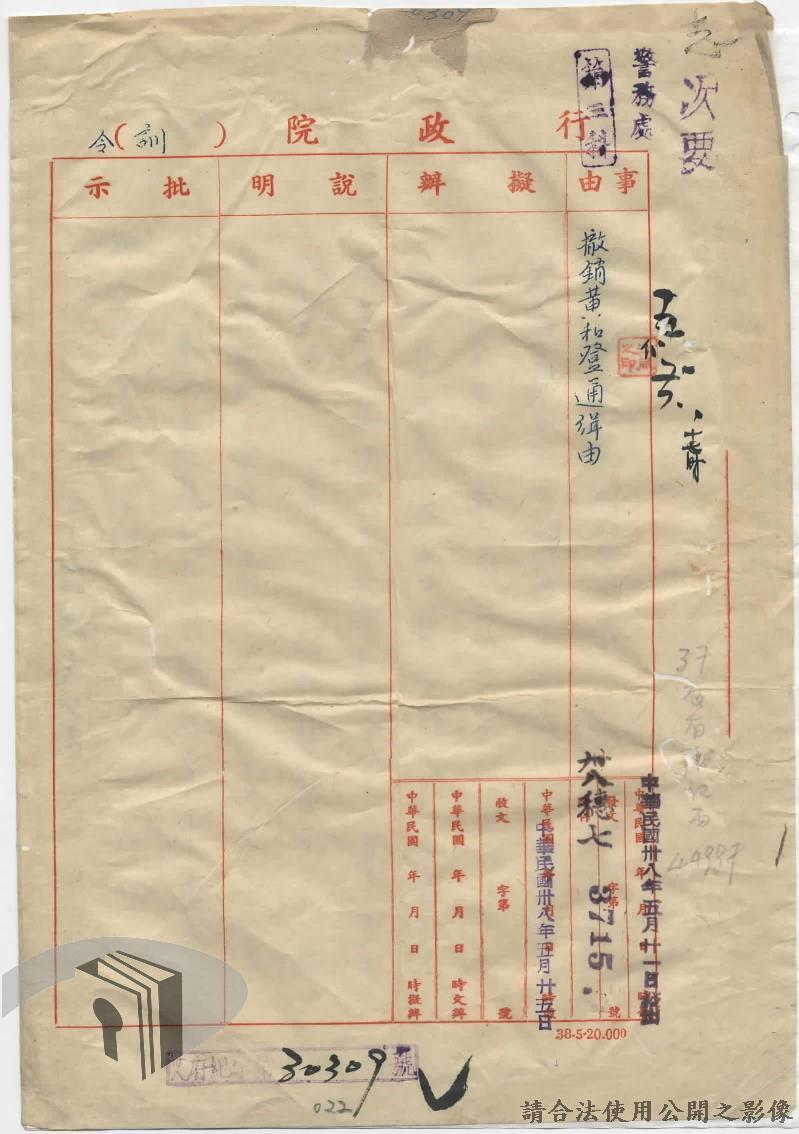 次要
警務處
第三科
行政院(訓)令
事由
擬辦
說明
批示
撤銷黃和登通緝由
中華民國卅八年五月廿一日
穗七
3715
發文
字第
號
中華民國卅八年五月廿五日
中華民國 年 月 日 時
收文 字第 號
中華民國 年 月 日 時文辦
中華民國 年 月 日 時擬辦
38-5-20.000
37
30309
號
022
請合法使用公開之影像